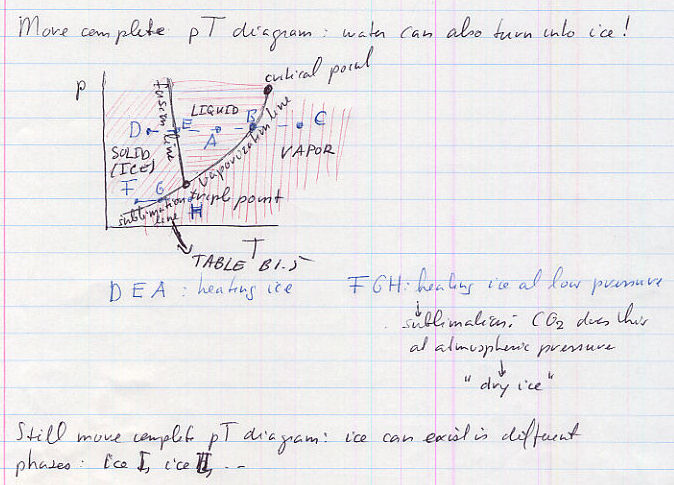 More complete pT diagram: water can also turn into ice!
critical point
p
Fusion line
LIQUID
D
E
A
B
C
Vaporization line
SOLID
(ICE)
VAPOR
F
G
H
triple point
sublimation
line
T
TABLE B1.5
DEA: heating ice
FGH: heating ice at low pressure
sublimation: CO2 does this
at atmospheric pressure
"dry ice"
Still more complete pT diagram: ice can exist in different
phases: ice I, ice II, ...